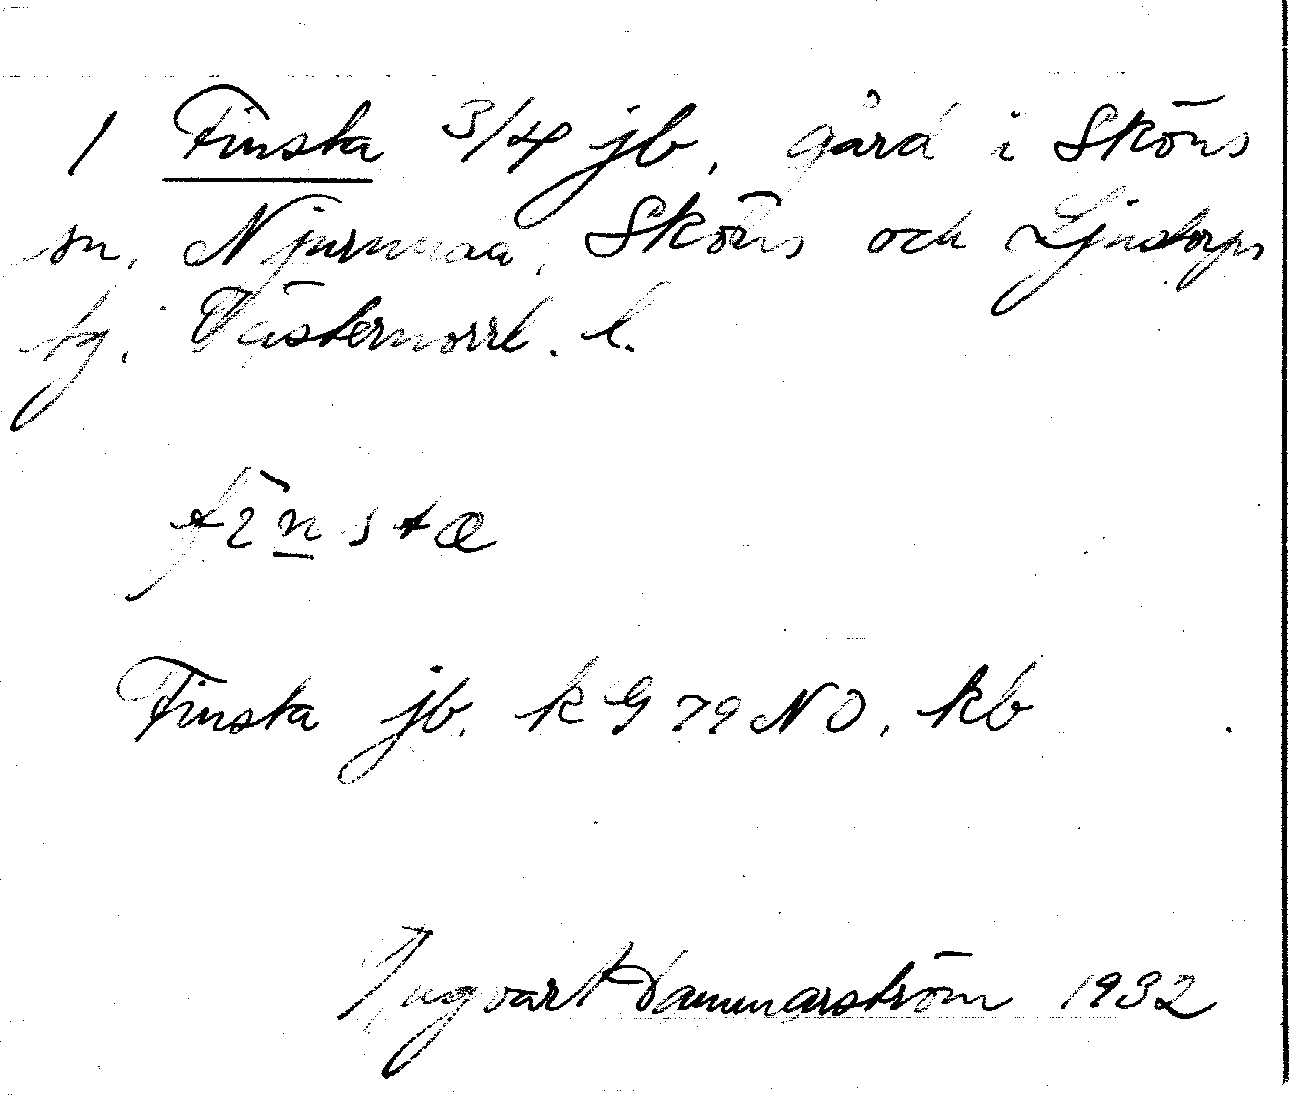 1 Finsta 3/4 jb, gård i Sköns
sn, Njurunda, Sköns och Ljustorps
tg. Västernorrl. l.
Finsta jb, k G 79 NO, kb
Ingvart Hammarström 1932